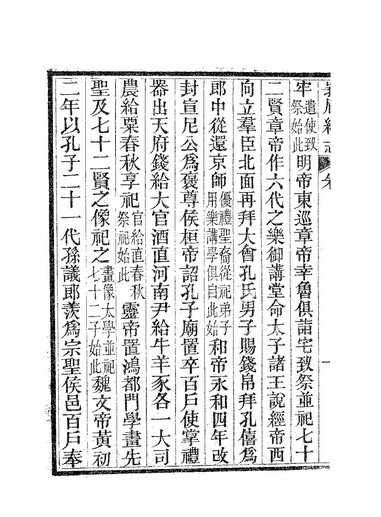 牢遣使致祭始此明帝東巡章帝幸魯俱詣宅致祭並祀七十
二賢章帝作六代之樂御講堂命太子諸王說經帝西
向立羣臣北面再拜大會孔氏男子賜錢帛拜孔僖爲
郎中從還京師優禮聖裔從祀弟子用樂講學俱自此始和帝永和四年改
封宣尼公爲褒尊侯桓帝詔孔子廟置卒百戶使掌禮
器出天府錢給大官酒直河南尹給牛羊豕各一大司
農給粟春秋享祀官給直春秋祭祀始此靈帝置鴻都門學畫先
聖及七十二賢之像祀之畫像太學並祀七十二子始此魏文帝黃初
二年以孔子二十一代孫議郎羨爲宗聖侯邑百戶奉